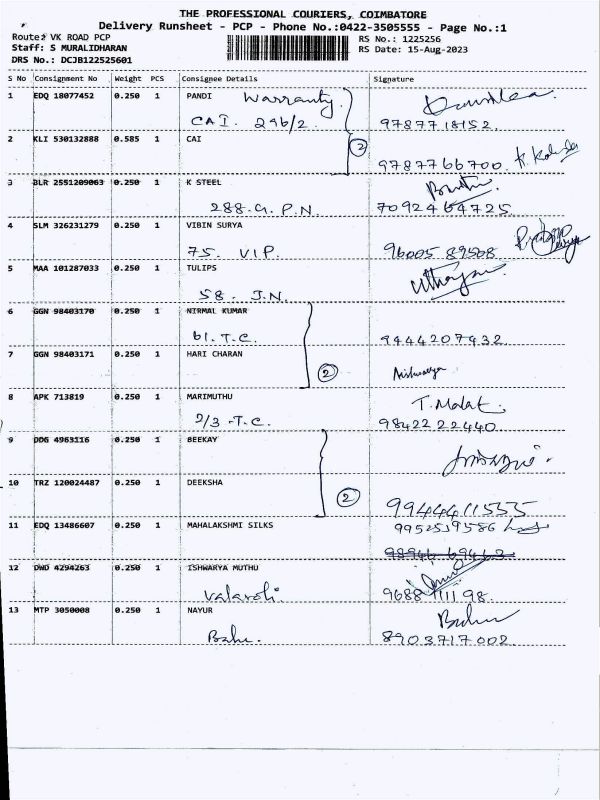 THE PROFESSIONAL COURIERS, COIMBATORE
Delivery Runsheet - PCP - Phone No.:0422-3505555 - Page No.:1
Route: VK ROAD PCP
Staff: S MURALIDHARAN
DRS No.: DCJB122525601
RS No.: 1225256
RS Date: 15-Aug-2023
S No Consignment No Weight PCS Consignee Details Signature
1 EDQ 18077452 0.250 1 PANDI Warranty
CAI. 296/2. 9787718152
2 KLI 530132888 0.585 1 CAI
2
9787766700
3 BLR 2551209063 0.250 1 K STEEL
288.G.P.N. 7092464725
4 SLM 326231279 0.250 1 VIBIN SURYA
75. VIP. 96005 89508
5 MAA 101287033 0.250 1 TULIPS
58. J.N.
6 GGN 98403170 0.250 1 NIRMAL KUMAR
61.T.C. 9444207932
7 GGN 98403171 0.250 1 HARI CHARAN
2
8 APK 713819 0.250 1 MARIMUTHU T. Malat
2/3 -T.C. 98422 22440
9 DDG 4963116 0.250 1 BEEKAY
10 TRZ 120024487 0.250 1 DEEKSHA
2
9944411555
11 EDQ 13486607 0.250 1 MAHALAKSHMI SILKS 9952519586
12 DWD 4294263 0.250 1 ISHWARYA MUTHU
9688 111198
13 MTP 3050008 0.250 1 NAYUR
8903717002